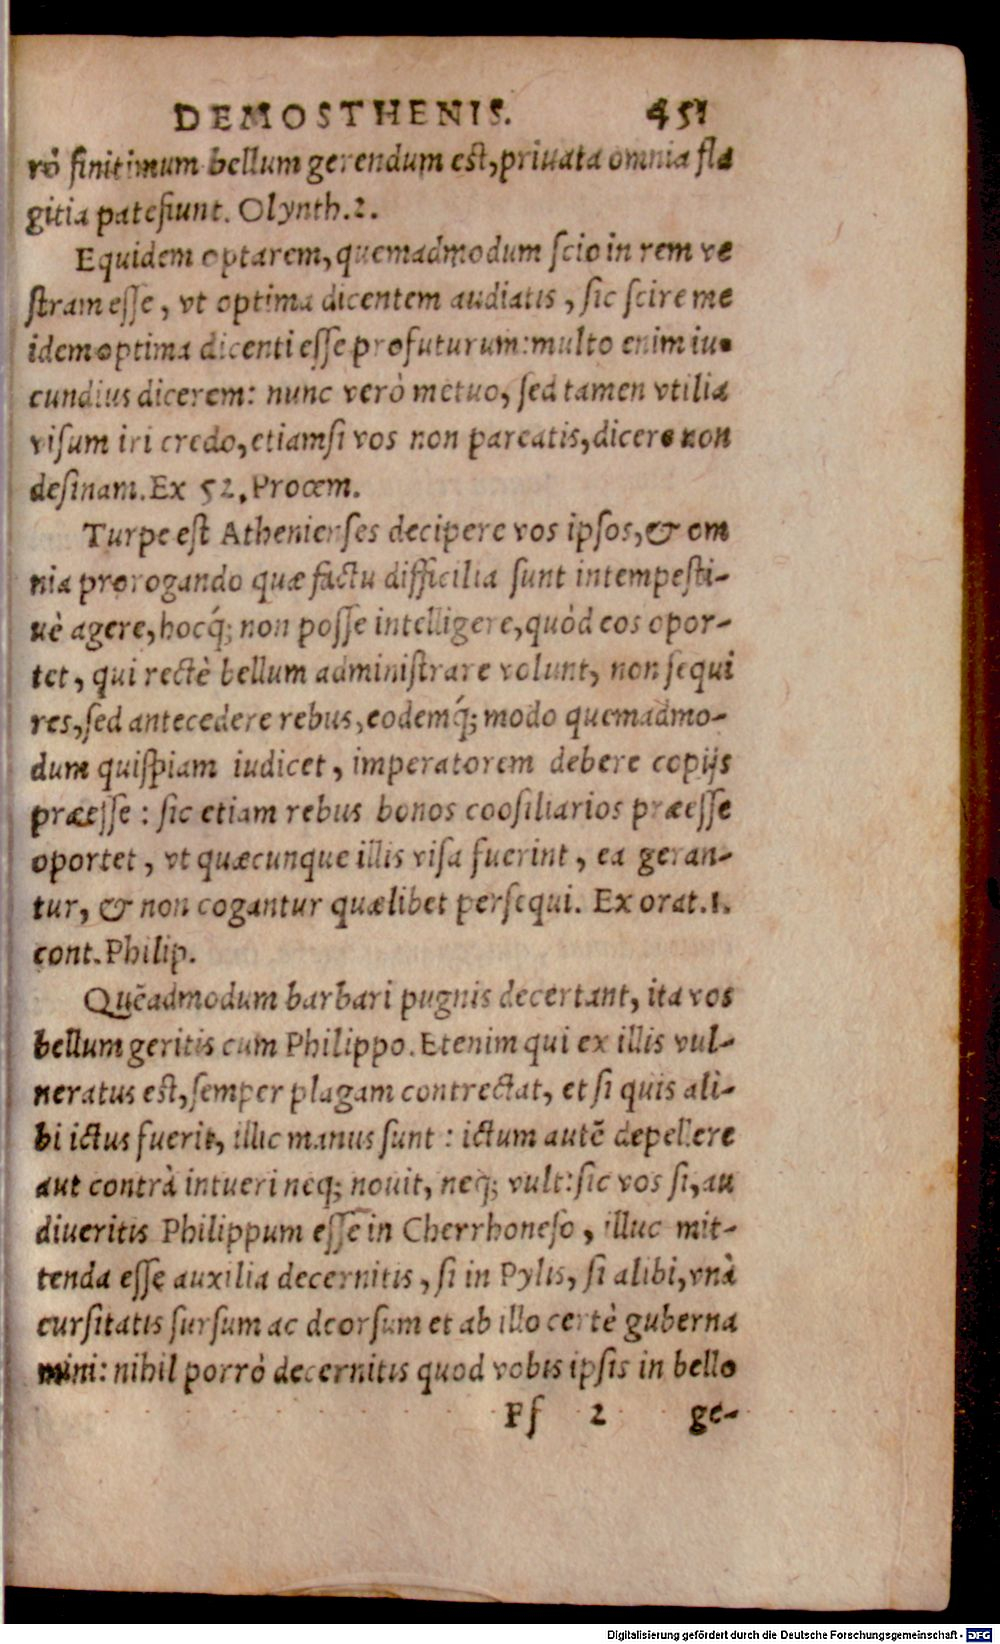 DEMOSTHENIS. 451
rò finitimum bellum gerendum est, priuata omnia fla
gitia patefiunt. Olynth.2.
Equidem optarem, quemadmodum scio in rem ve
stram esse, vt optima dicentem audiatis, sic scire me
idem optima dicenti esse profuturum: multo enim iu-
cundius dicerem: nunc verò metuo, sed tamen vtilia
visum iri credo, etiamsi vos non pareatis, dicere non
desinam. Ex 52. Proœm.
Turpe est Athenienses decipere vos ipsos, & om
nia prorogando quæ factu difficilia sunt intempesti-
uè agere, hocq́; non posse intelligere, quòd eos opor-
tet, qui rectè bellum administrare volunt, non sequi
res, sed antecedere rebus, eodemq́; modo quemadmo-
dum quispiam iudicet, imperatorem debere copijs
præesse: sic etiam rebus bonos coosiliarios præesse
oportet, vt quæcunque illis visa fuerint, ea geran-
tur, & non cogantur quælibet persequi. Ex orat.1.
cont. Philip.
Quēadmodum barbari pugnis decertant, ita vos
bellum geritis cum Philippo. Etenim qui ex illis vul-
neratus est, semper plagam contrectat, et si quis ali-
bi ictus fuerit, illic manus sunt: ictum autē depellere
aut contrà intueri neq; nouit, neq; vult: sic vos si, au
diueritis Philippum esse in Cherrhoneso, illuc mit-
tenda esse auxilia decernitis, si in Pylis, si alibi, vnà
cursitatis sursum ac deorsum et ab illo certè guberna
mini: nihil porrò decernitis quod vobis ipsis in bello
Ff 2 ge-
Digitalisierung gefördert durch die Deutsche Forschungsgemeinschaft - DFG